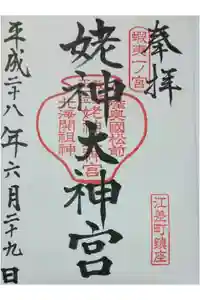 奉拝
蝦夷一ノ宮
姥神大神宮
陸奥國松前
姥神
宮
北海開祖神
江差町鎮座
平成二十八年六月二十九日